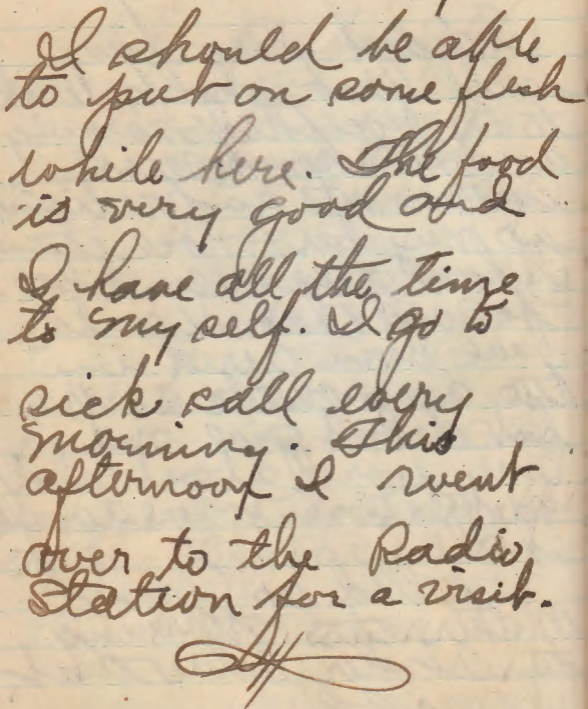 I should be able
to put on some flesh
while here. The food
is very good and
I have all the time
to my self. I go to
sick call every
morning. This
afternoon I went
over to the Radio
Station for a visit.